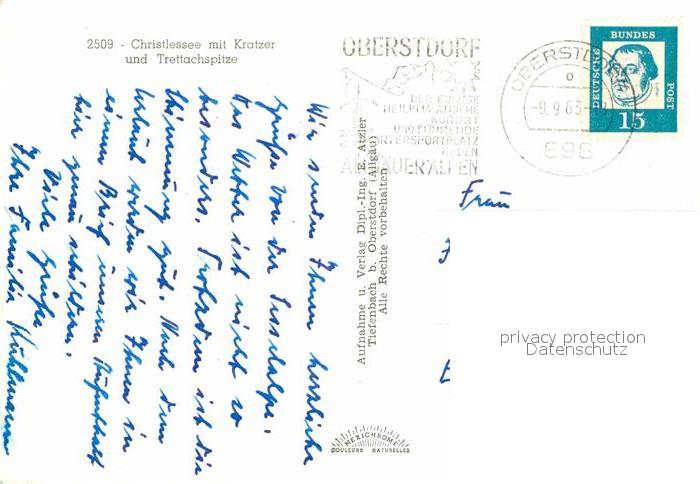 2509 - Christlessee mit Kratzer
und Trettachspitze
OBERSTDORF
DER EINZIGE
HEILKLIMATISCHE
KURORT
UND FÜHRENDE
WINTERSPORTPLATZ
IN DEN
ALLGÄUER ALPEN
OBERSTDORF
-9.9.63-
698
DEUTSCHE BUNDES POST
15
Wir senden Ihnen herzliche
Grüße von der
Das Wetter ist nicht so
besonders. Trotzdem ist die
Stimmung gut. Nach dem
Urlaub werden wir Ihnen in
einem Brief unseren Aufenthalt
hier genau schildern.
Viele Grüße
Ihre Familie Kuhlmann
Aufnahme u. Verlag Dipl.-Ing. E. Atzler
Tiefenbach b. Oberstdorf (Allgäu)
Alle Rechte vorbehalten
Frau
privacy protection
Datenschutz
MEXICHROME
COULEURS NATURELLES